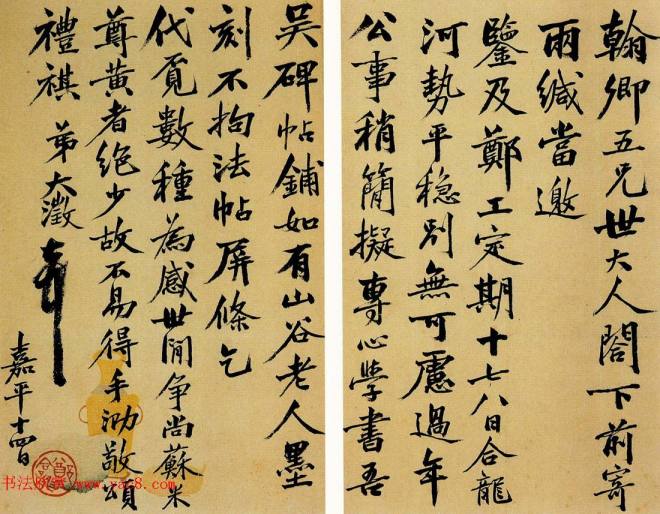 翰卿五兄世大人閣下前寄
兩緘當邀
鑒及鄭工定期十七八日合龍
河勢平穩別無可慮過年
公事稍簡擬專心學書吾
吴碑帖鋪如有山谷老人墨
刻不拘法帖屏條乞
代覓數種為感世間争尚蘇米
尊黄者绝少故不易得手泐敬頌
禮祺 弟大澂
嘉平十四日
书法欣赏 www.yac8.com